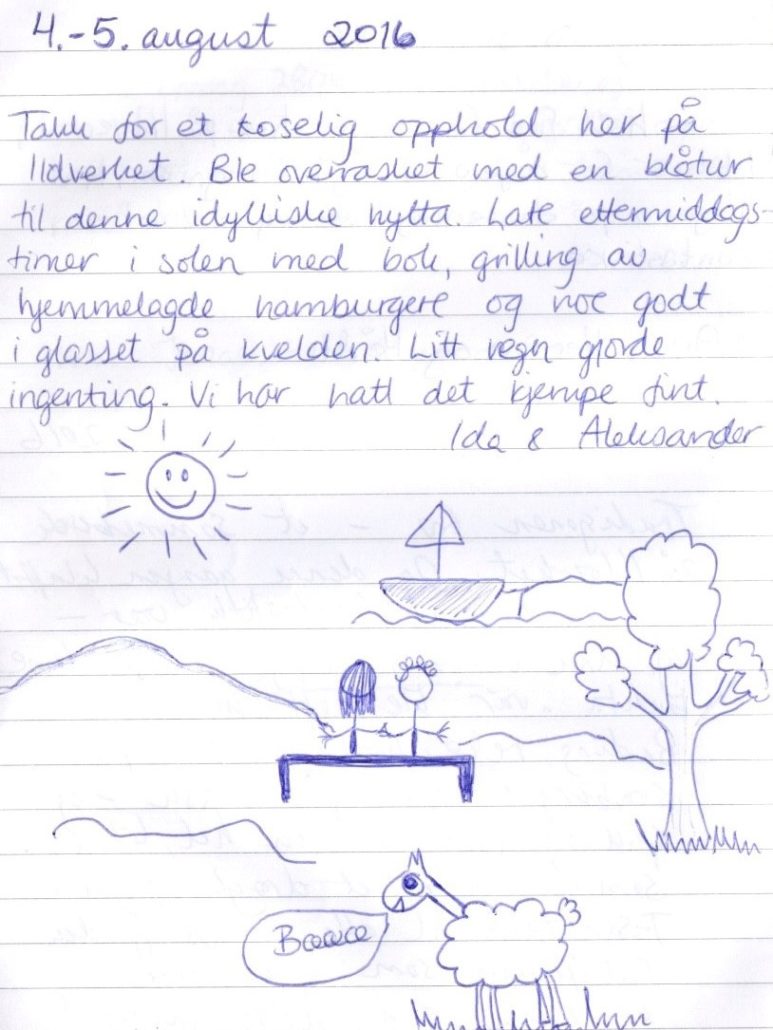 4.-5. august 2016
Takk for et koselig opphold her på
Ildverket. Ble overrasket med en blåtur
til denne idylliske hytta. Late ettermiddags-
timer i solen med bok, grilling av
hjemmelagde hamburgere og noe godt
i glasset på kvelden. Litt regn gjorde
ingenting. Vi har hatt det kjempe fint.
Ida & Aleksander
Bææææ